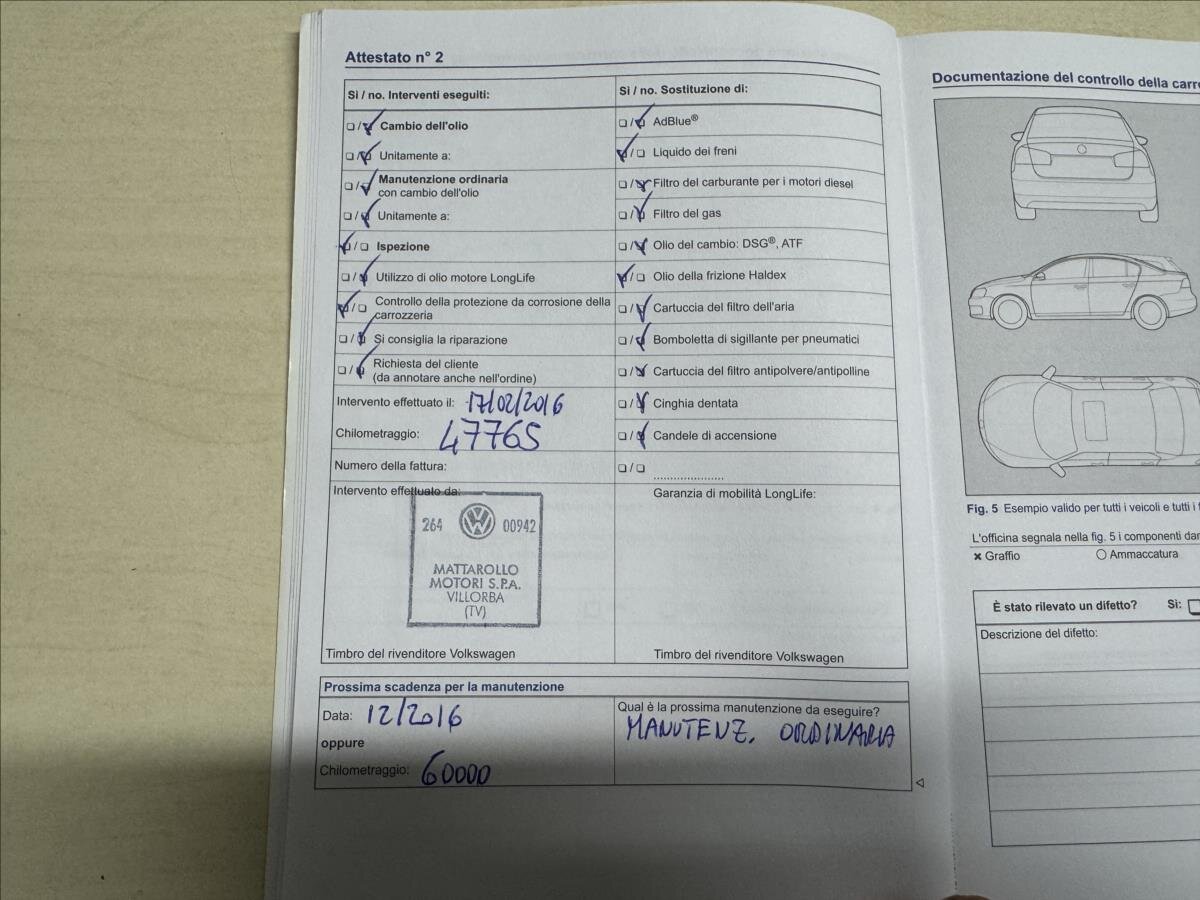 Attestato n° 2
Si / no. Interventi eseguiti:
Cambio dell'olio
Unitamente a:
Manutenzione ordinaria
con cambio dell'olio
Unitamente a:
Ispezione
Utilizzo di olio motore LongLife
Controllo della protezione da corrosione della
carrozzeria
Si consiglia la riparazione
Richiesta del cliente
(da annotare anche nell'ordine)
Intervento effettuato il: 17/02/2016
Chilometraggio: 47765
Numero della fattura:
Intervento effettuato da:
264 00942
MATTAROLLO
MOTORI S.P.A.
VILLORBA
(TV)
Timbro del rivenditore Volkswagen
Si / no. Sostituzione di:
AdBlue®
Liquido dei freni
Filtro del carburante per i motori diesel
Filtro del gas
Olio del cambio: DSG®, ATF
Olio della frizione Haldex
Cartuccia del filtro dell'aria
Bomboletta di sigillante per pneumatici
Cartuccia del filtro antipolvere/antipolline
Cinghia dentata
Candele di accensione
Garanzia di mobilità LongLife:
Timbro del rivenditore Volkswagen
Prossima scadenza per la manutenzione
Data: 12/2016
oppure
Chilometraggio: 60000
Qual è la prossima manutenzione da eseguire?
MANUTENZ. ORDINARIA
Documentazione del controllo della
Fig. 5 Esempio valido per tutti i veicoli e tutti i
L'officina segnala nella fig. 5 i componenti
Graffio
Ammaccatura
È stato rilevato un difetto? Si:
Descrizione del difetto: